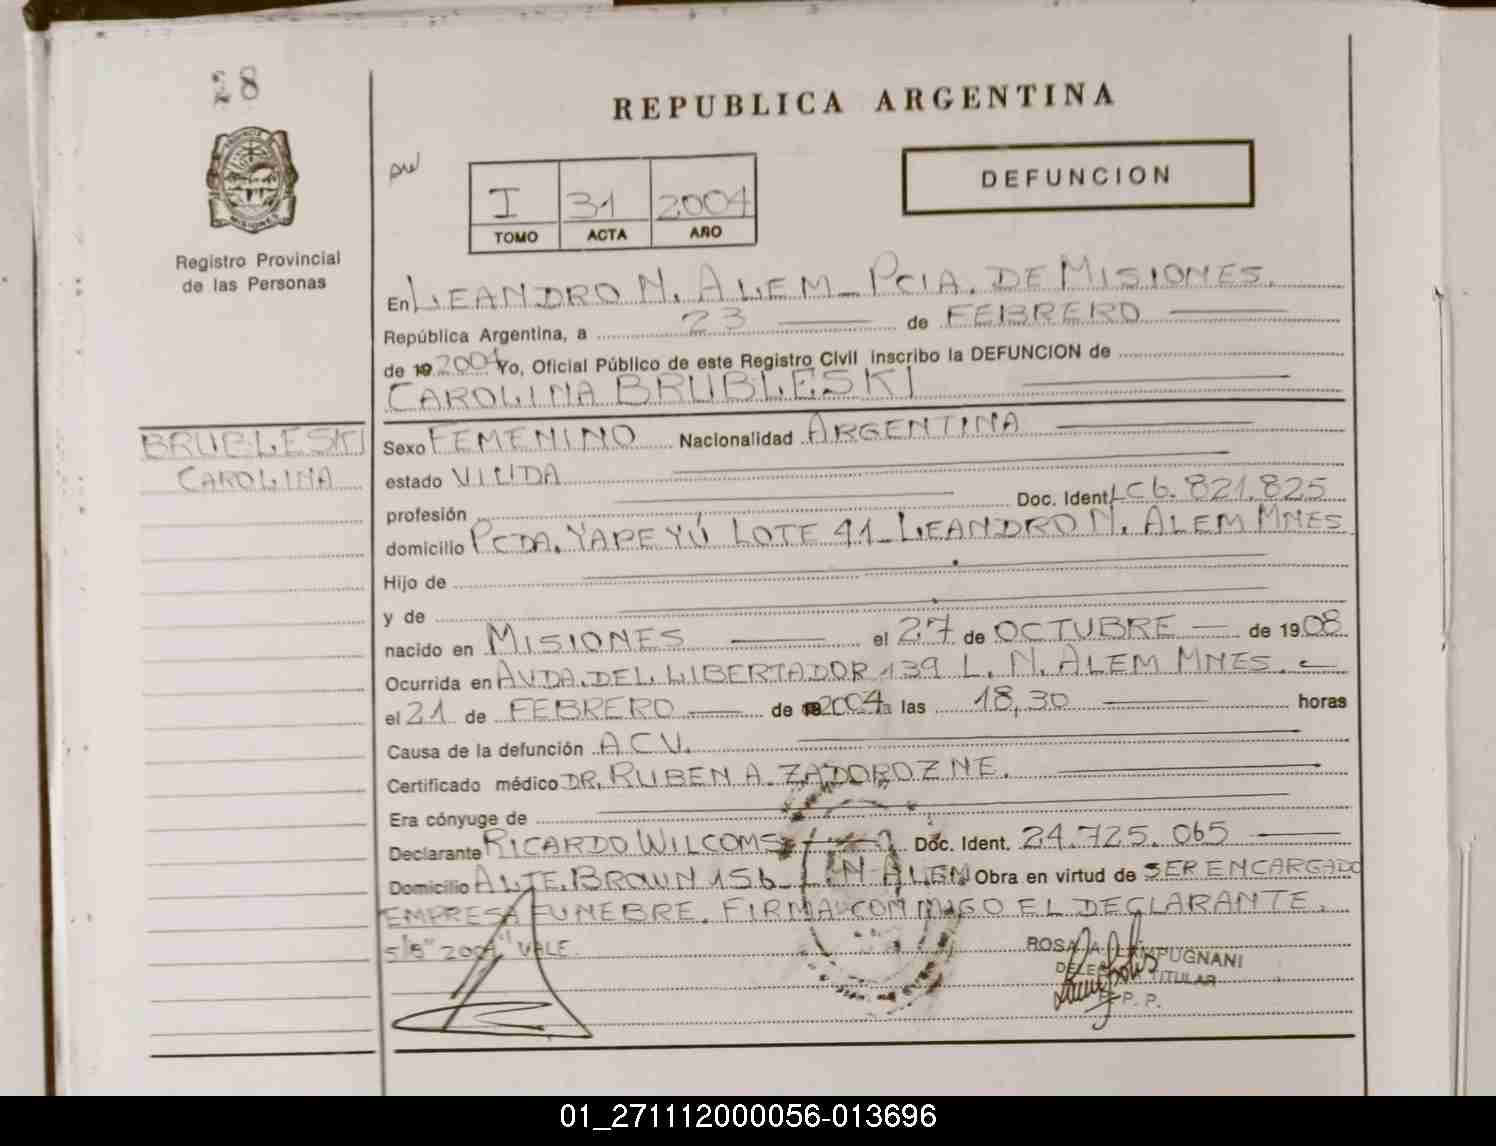 28
REPUBLICA ARGENTINA
DEFUNCION
I 31 2004
TOMO ACTA AÑO
Registro Provincial
de las Personas
En LEANDRO N. ALEM_ PCIA. DE MISIONES.
República Argentina, a 23 de FEBRERO
de 19 2004 Yo, Oficial Público de este Registro Civil inscribo la DEFUNCION de
CAROLINA BRUBLESKI
BRUBLESKI
CAROLINA
Sexo FEMENINO Nacionalidad ARGENTINA
estado VIUDA
profesión Doc. Ident. LC 6.821.825
domicilio PCDA. YAPEYÚ LOTE 41_ LEANDRO N. ALEM MNES
Hijo de
y de
nacido en MISIONES el 27 de OCTUBRE de 1908
Ocurrida en AVDA. DEL LIBERTADOR 139 L. N. ALEM MNES.
el 21 de FEBRERO de 2004 a las 18,30 horas
Causa de la defunción A.C.V.
Certificado médico DR. RUBEN A. ZADOROZNE.
Era cónyuge de
Declarante RICARDO WILCOMS Doc. Ident. 24.725.065
Domicilio ALTE. BROWN 156 L. N. ALEM Obra en virtud de SER ENCARGADO
EMPRESA FUNEBRE. FIRMA CONMIGO EL DECLARANTE.
S/B "2004" VALE.
ROSA A. PUGNANI
TITULAR
R. P. P.
01_271112000056-013696